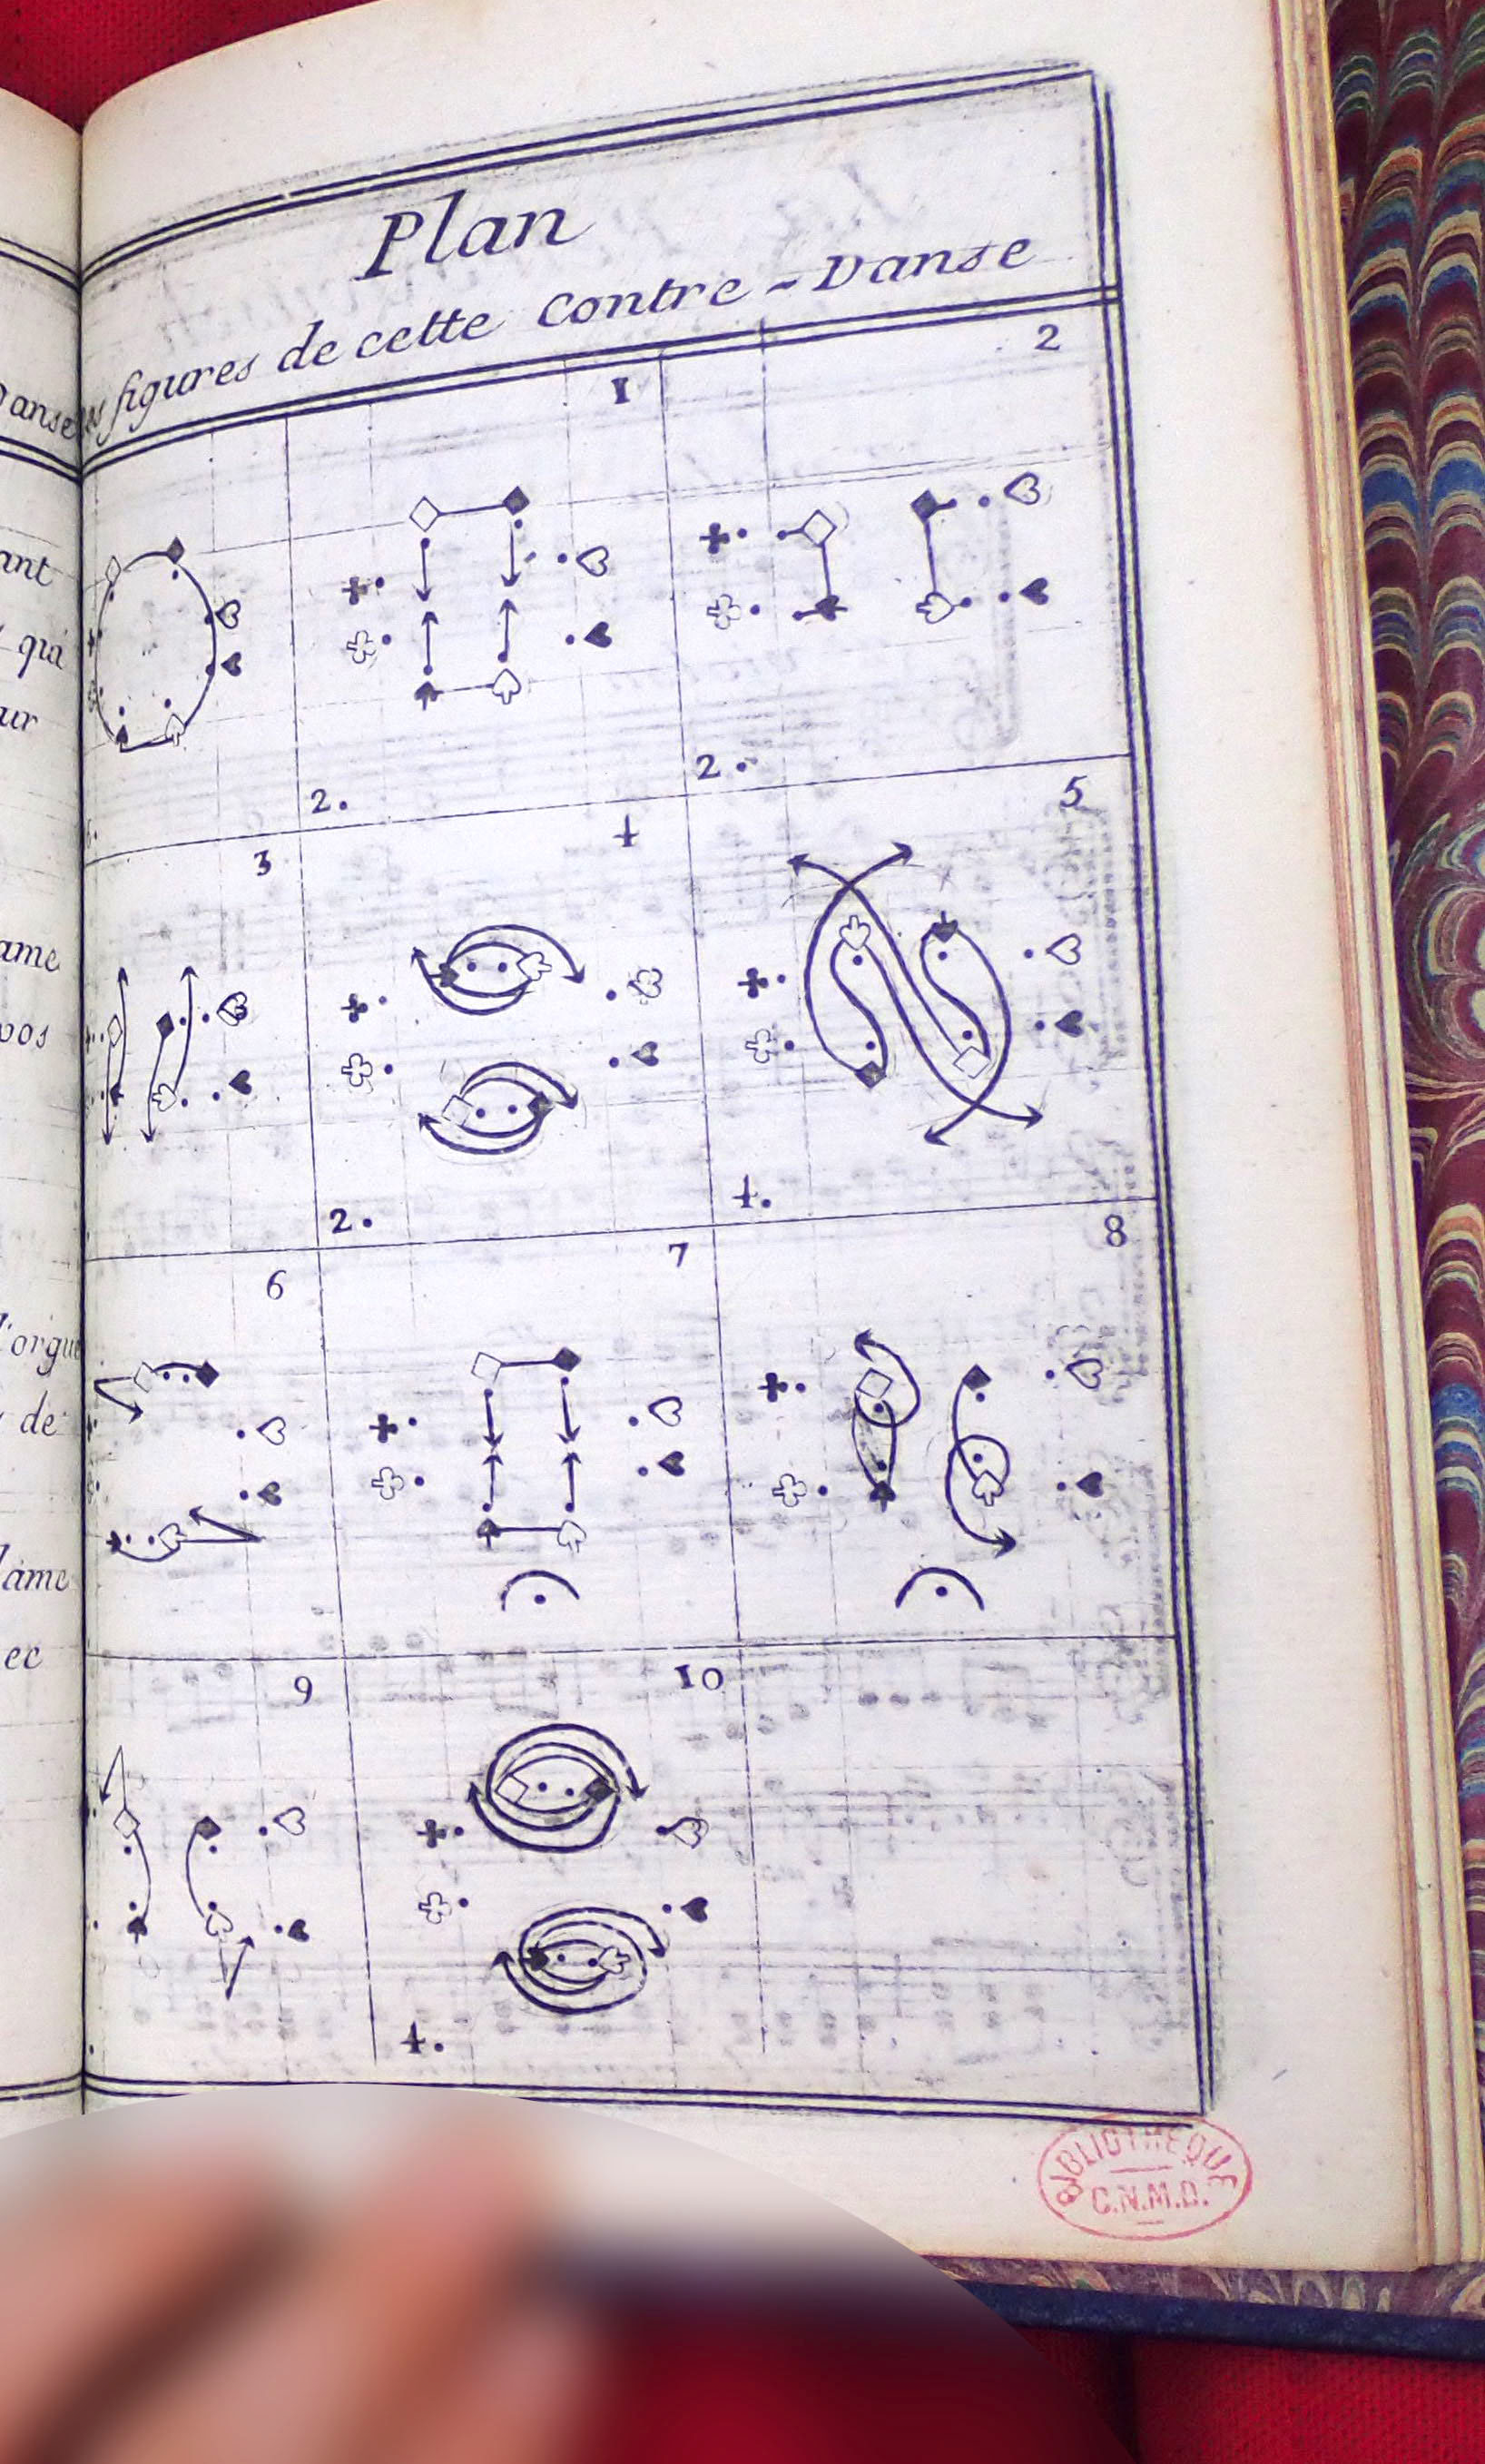 Plan
figures de cette Contre-Danse
1
2
2.
2.
3
4
5
2.
4.
6
7
8
9
10
4.
ant
qui
ur
ame
vos
l'orgue
de
dame
ec
BIBLIOTHEQUE
C.N.M.D.